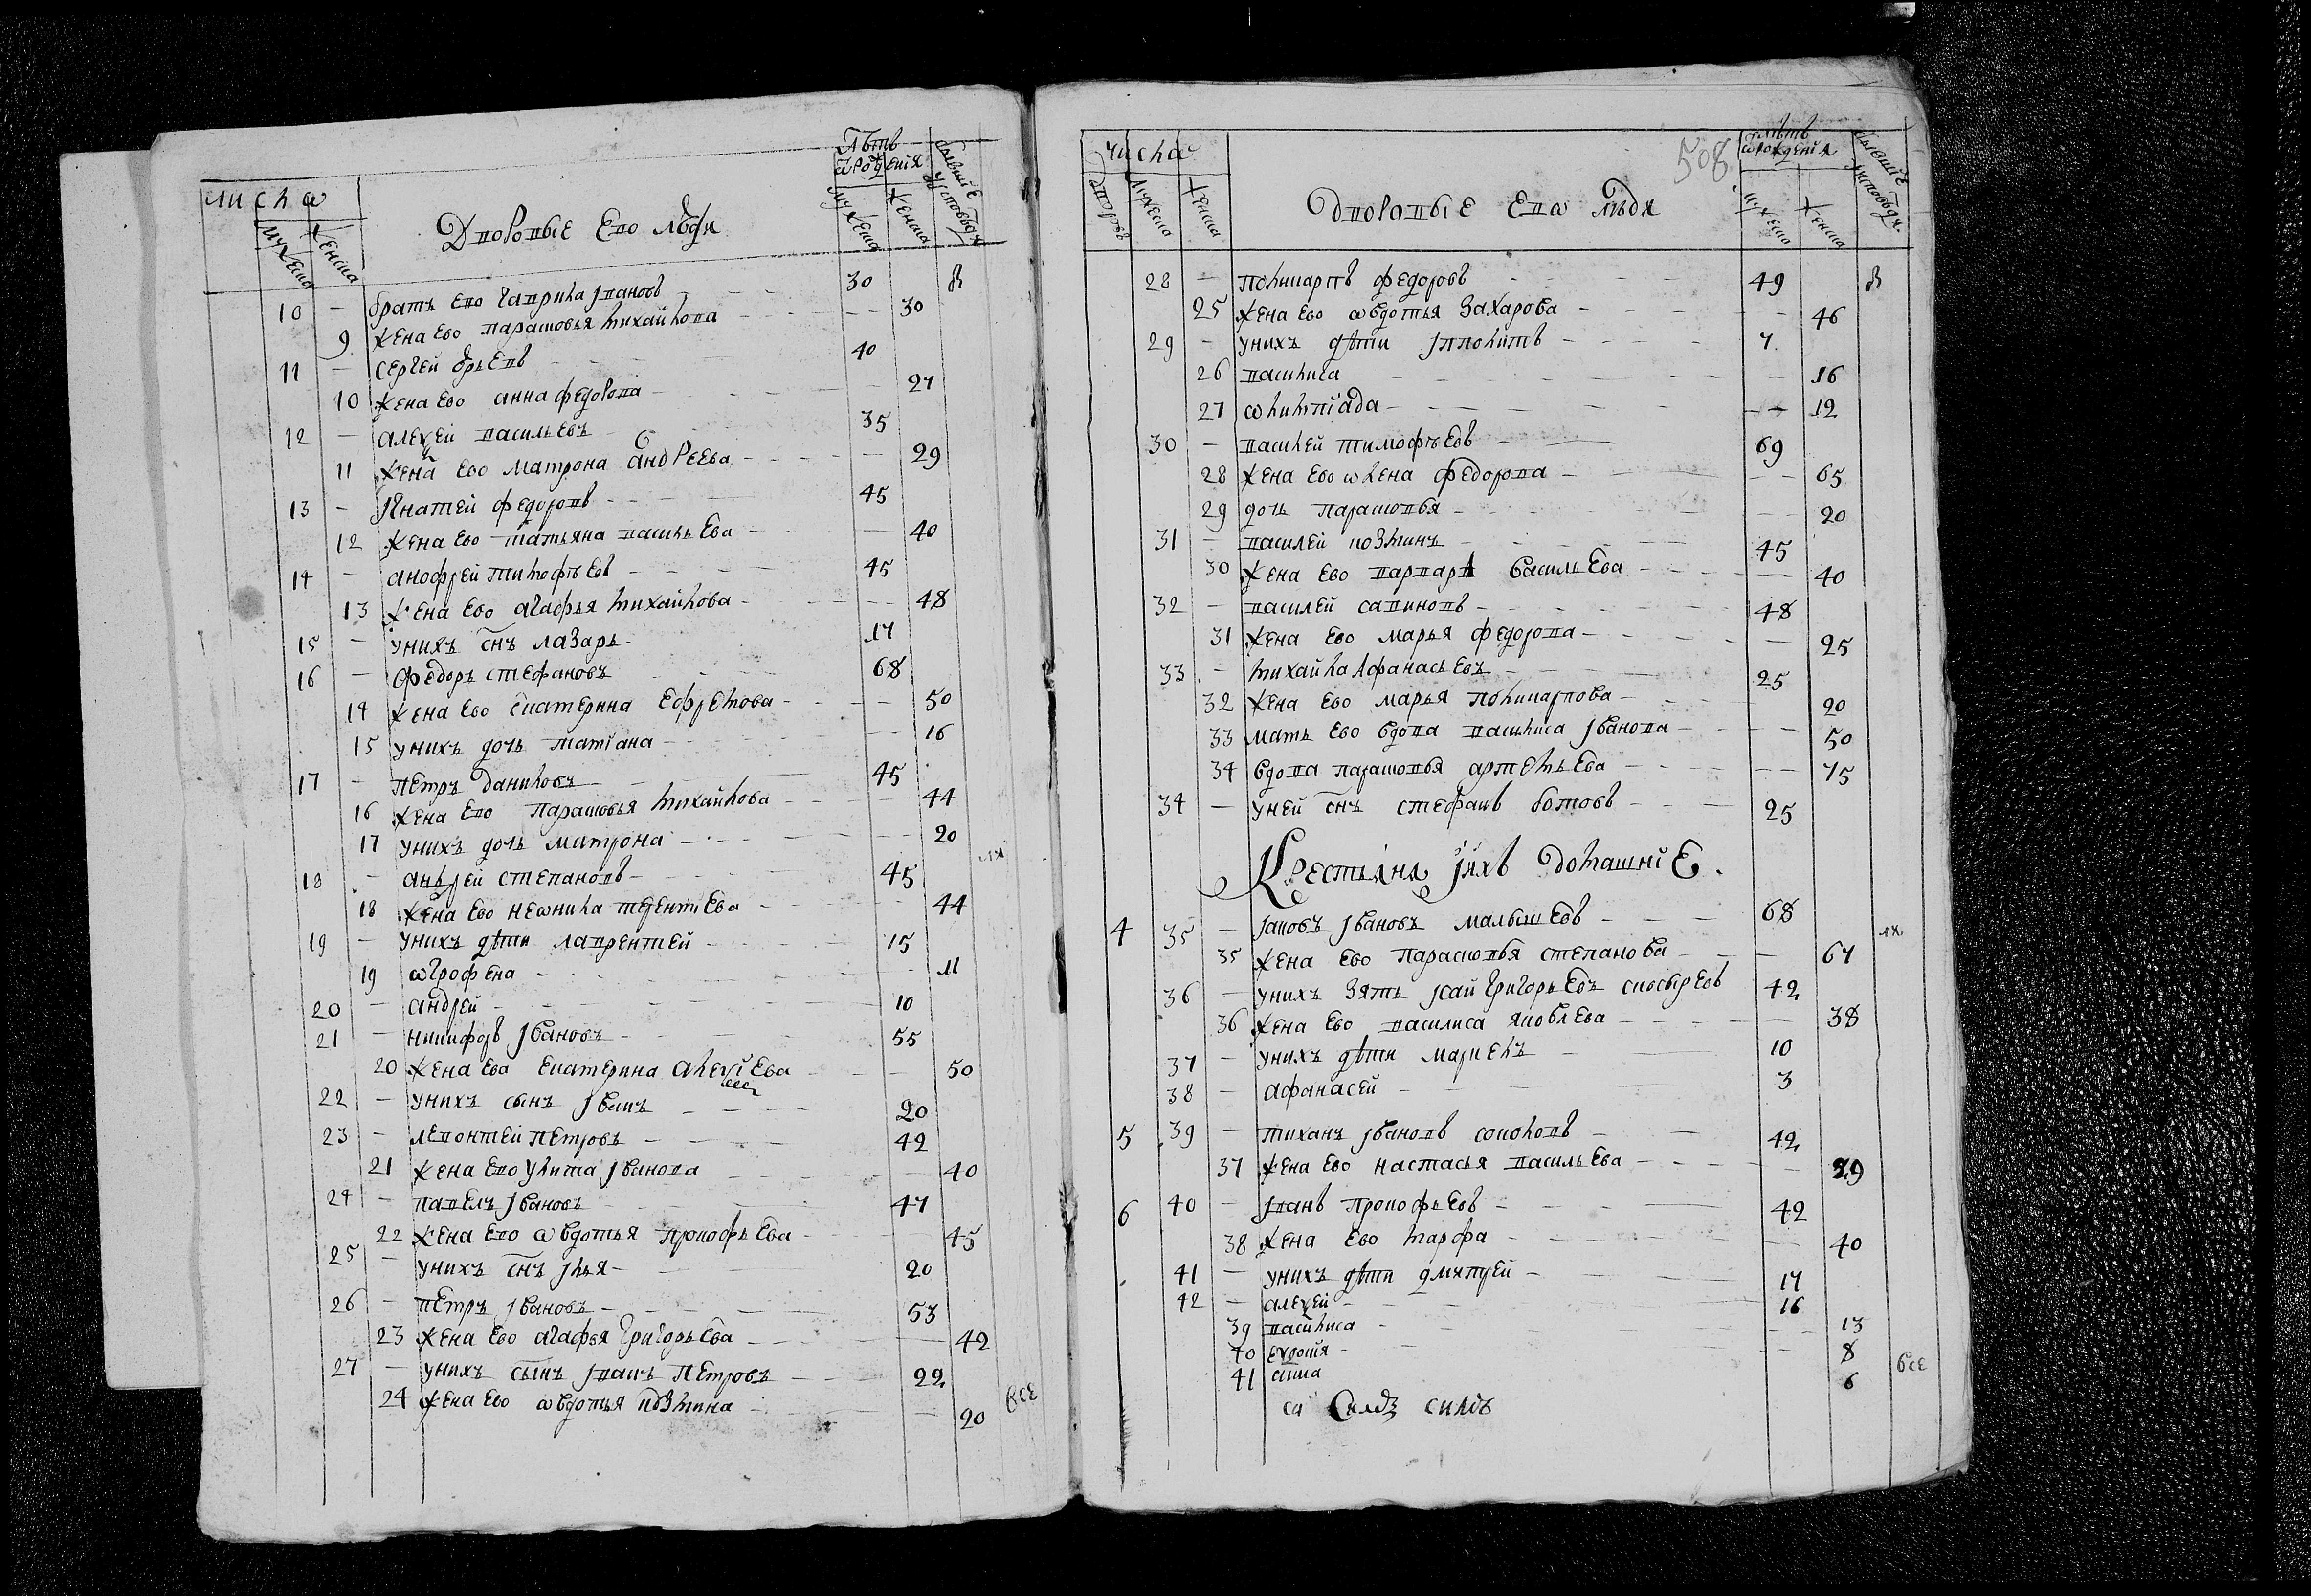 числа
мужеска
женска
Дворовые Ево люди
Лѣтъ
ѿ рождения
мужеска
женска
бывшие
у исповѣди
10 - братъ ево Гаврила Jвановъ - - - 30 в
9 жена ево парасковья михайлова - - - 30
11 - сергей юрьевъ - - - 40
10 жена ево анна федорова - - - 27
12 - алеѯей васильевъ - - - 35
11 жена ево матрона андреева - - - 29
13 - Игнатей федоровъ - - - 45
12 жена ево татьяна васильева - - - 40
14 - анофрей тимофѣевъ - - - 45
13 жена ево агафья михайлова - - - 48
15 - у нихъ снъ лазарь - 17
16 - Федоръ стефановъ - - - 68
14 жена ево екатерина ефремова - - - 50
15 у нихъ дочь матiана - - - 16
17 - петръ даниловъ - - - 45
16 жена ево парасковья михайлова - - - 44
17 у нихъ дочь матрона - - - 20
18 - андрей степановъ - - - 45
18 жена ево неѡнила терентьева - - - 44
19 - у нихъ дѣти лаврентей - - - 15
19 ѡгрофена - - - 11
20 - андрей - - - 10
21 - никифоръ Jвановъ - - - 55
20 жена ева екатерина алеѯiева - - - 50
22 - у нихъ сынъ Jванъ - - - 20
23 - левонтей петровъ - - - 42
21 жена ево улита Jванова - - - 40
24 - павелъ Jвановъ - - - 47
22 жена ево ѡвдотья прокофьева - - - 45
25 - у нихъ снъ Jлья - - - 20
26 - петръ Jвановъ - - - 53
23 жена ево агафья григорьева - - - 42
27 - у нихъ сынъ Jванъ петровъ - - - 22
24 жена ево ѡвдотья козмина - - - 20 все
508
числа
дворовъ
мужеска
женска
Дворовые Евѡ люди
лѣтъ
ѿ рождения
мужеска
женска
бывшие
у исповѣди
28 - поликарпъ федоровъ - - - 49 в
25 жена ево ѡвдотья захарова - - - 46
29 - у нихъ дѣти Jпполитъ - - - 7
26 василиса - - - 16
27 ѡлимпiада - - - 12
30 - василей тимофѣевъ - - - 69
28 жена ево ѡлена федорова - - - 65
29 дочь парасковья - - - 20
31 - василей козминъ - - - 45
30 жена ево варвара васильева - - - 40
32 - василей савиновъ - - - 48
31 жена ево марья федорова - - - 25
33 - михайла Афанасьевъ - - - 25
32 жена ево марья поликарпова - - - 20
33 мать ево вдова василиса Jванова - - - 50
34 вдова парасковья артемьева - - - 75
34 - у ней снъ стефанъ ботовъ - - - 25
Крестьяня Jихъ домашнiЕ.
4 35 - Jаковъ Jвановъ малышевъ - - - 68
35 жена ево парасковья степанова - - - 67
36 - у нихъ зять Jсай григорьевъ сносыревъ 42
36 жена ево василиса яковлева - - - 38
37 - у нихъ дѣти маркелъ - - - 10
38 - афанасей - - - 3
5 39 - тиханъ Jвановъ соколовъ - - - 42
37 жена ево настасья васильева - - - 29
6 40 - Jванъ прокофьевъ - - - 42
38 жена ево марфа - - - 40
41 - у нихъ дѣти дмитрей - - - 17
42 - алеѯей - - - 16
39 василиса - - - 13
40 - - - 8
41 - - - 6 все